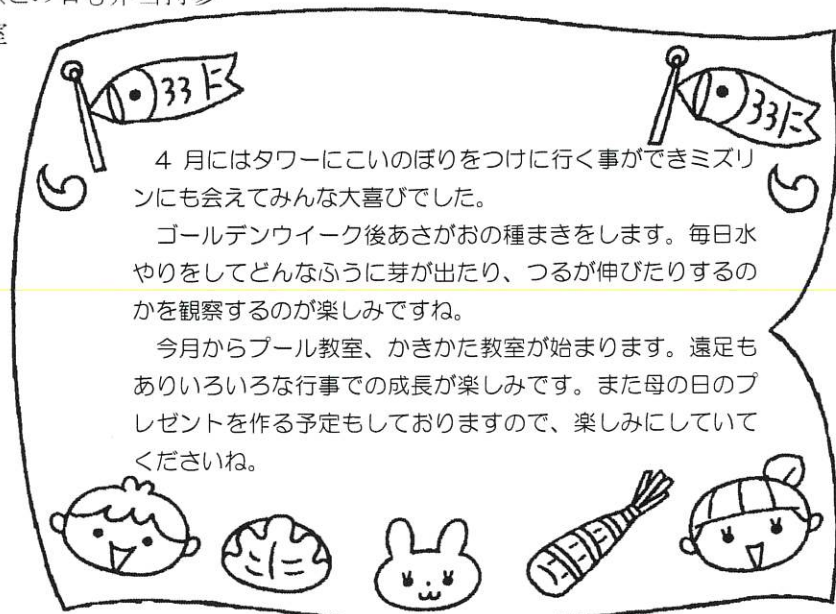 室
4 月にはタワーにこいのぼりをつけに行く事ができミズリ
ンにも会えてみんな大喜びでした。
ゴールデンウイーク後あさがおの種まきをします。毎日水
やりをしてどんなふうに芽が出たり、つるが伸びたりするの
かを観察するのが楽しみですね。
今月からプール教室、かきかた教室が始まります。遠足も
ありいろいろな行事での成長が楽しみです。また母の日のプ
レゼントを作る予定もしておりますので、楽しみにしていて
くださいね。